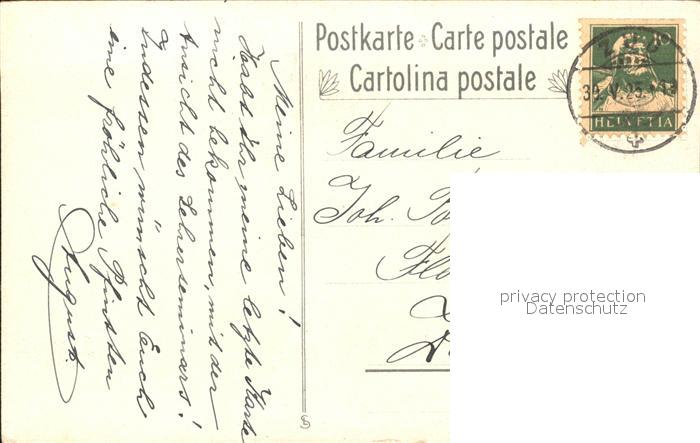 Postkarte Carte postale
Cartolina postale
10
30. V. 25.
HELVETIA
Familie
Joh.
privacy protection
Datenschutz
Meine Lieben!
Habt Ihr meine letzte Karte
nicht bekommen, mit der
Ansicht des Lehrerseminars?
Indessen wünscht Euch
eine fröhliche Pfingsten
August.